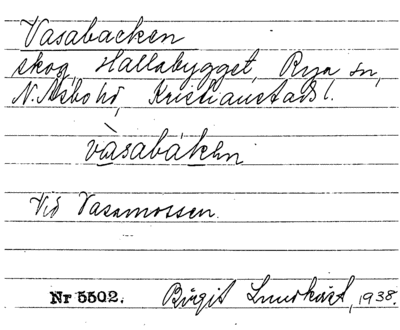 Vasabacken
skog, Hallabygget, Rya sn,
N. Åsbo hd, Kristianstads l.
vàsabákẹn
Vid Vasamossen.
Nr 5502. Birgit Lundkvist, 1938.